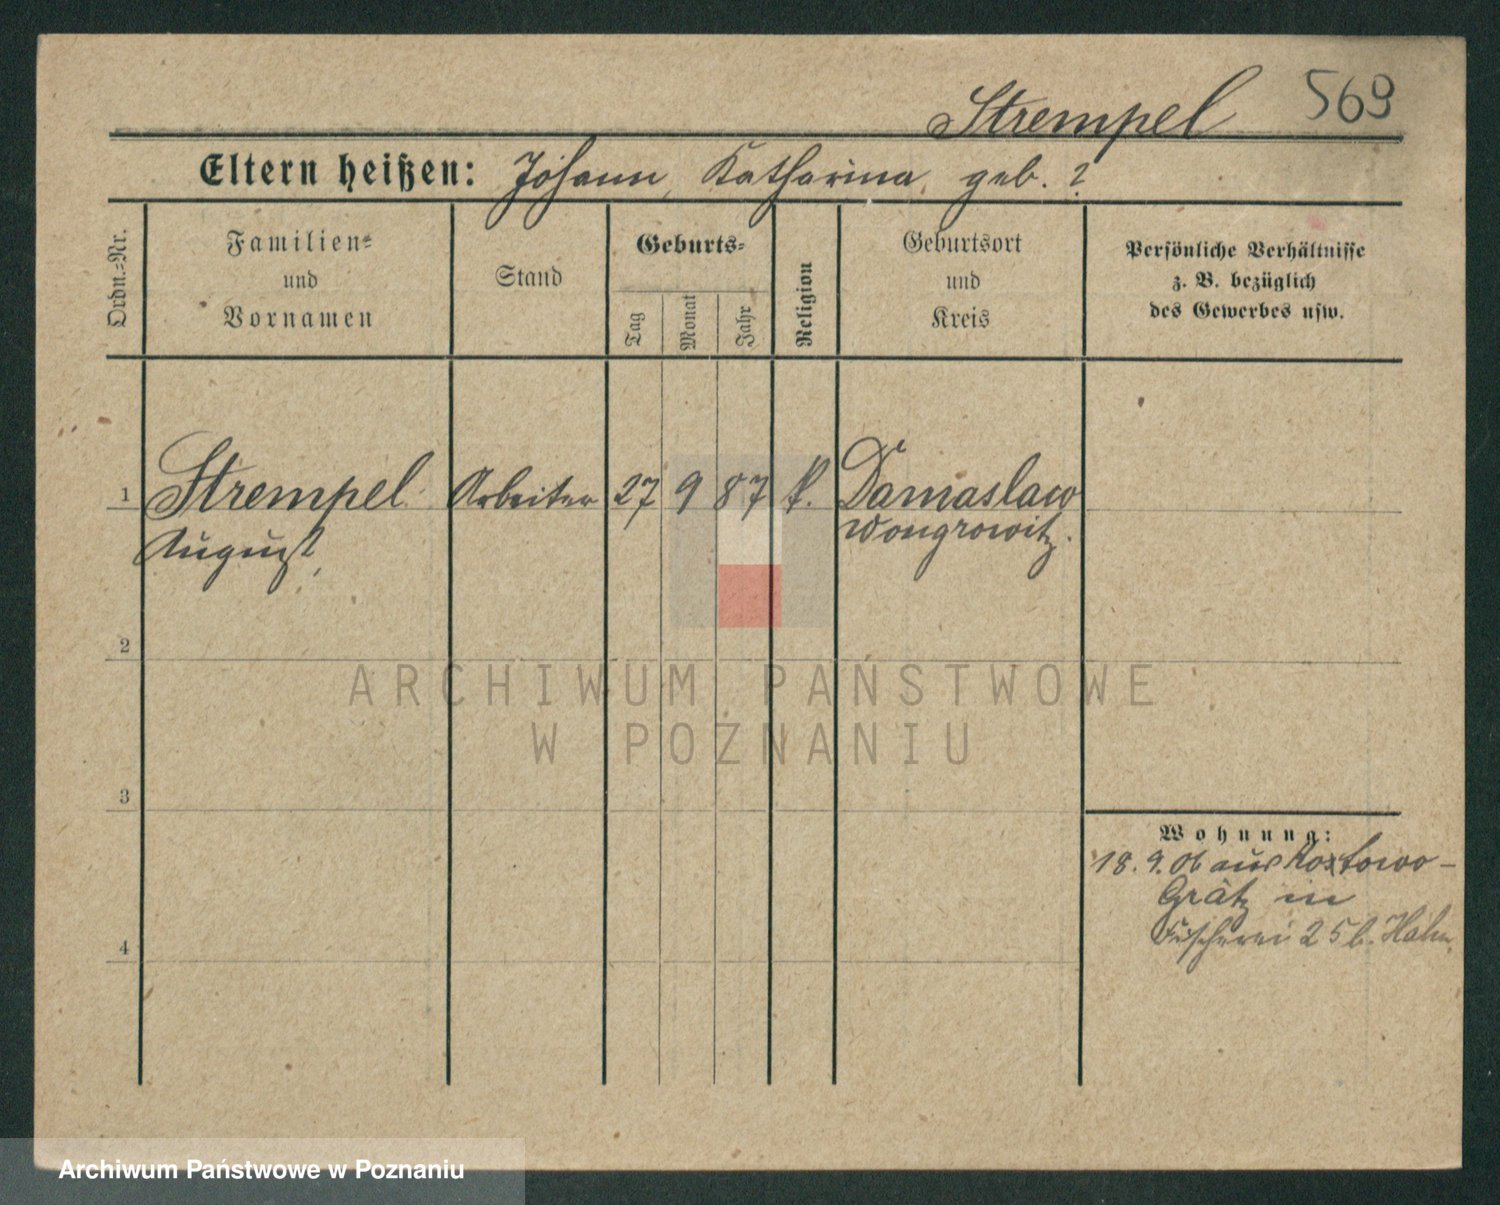 Strempel 569
Eltern heißen: Johann, Katharina, geb. ?
Ordn.=Nr.
Familien=
und
Vornamen
Stand
Geburts=
Tag
Monat
Jahr
Religion
Geburtsort
und
Kreis
Persönliche Verhältnisse
z. B. bezüglich
des Gewerbes usw.
1 Strempel Arbeiter 27 9 87 k. Damaslaw
August, Wongrowitz.
2
3
4
Wohnung:
18. 9. 06 aus
Grätz in
Fischerei 25 b. Hahn.
ARCHIWUM PAŃSTWOWE
W POZNANIU
Archiwum Państwowe w Poznaniu